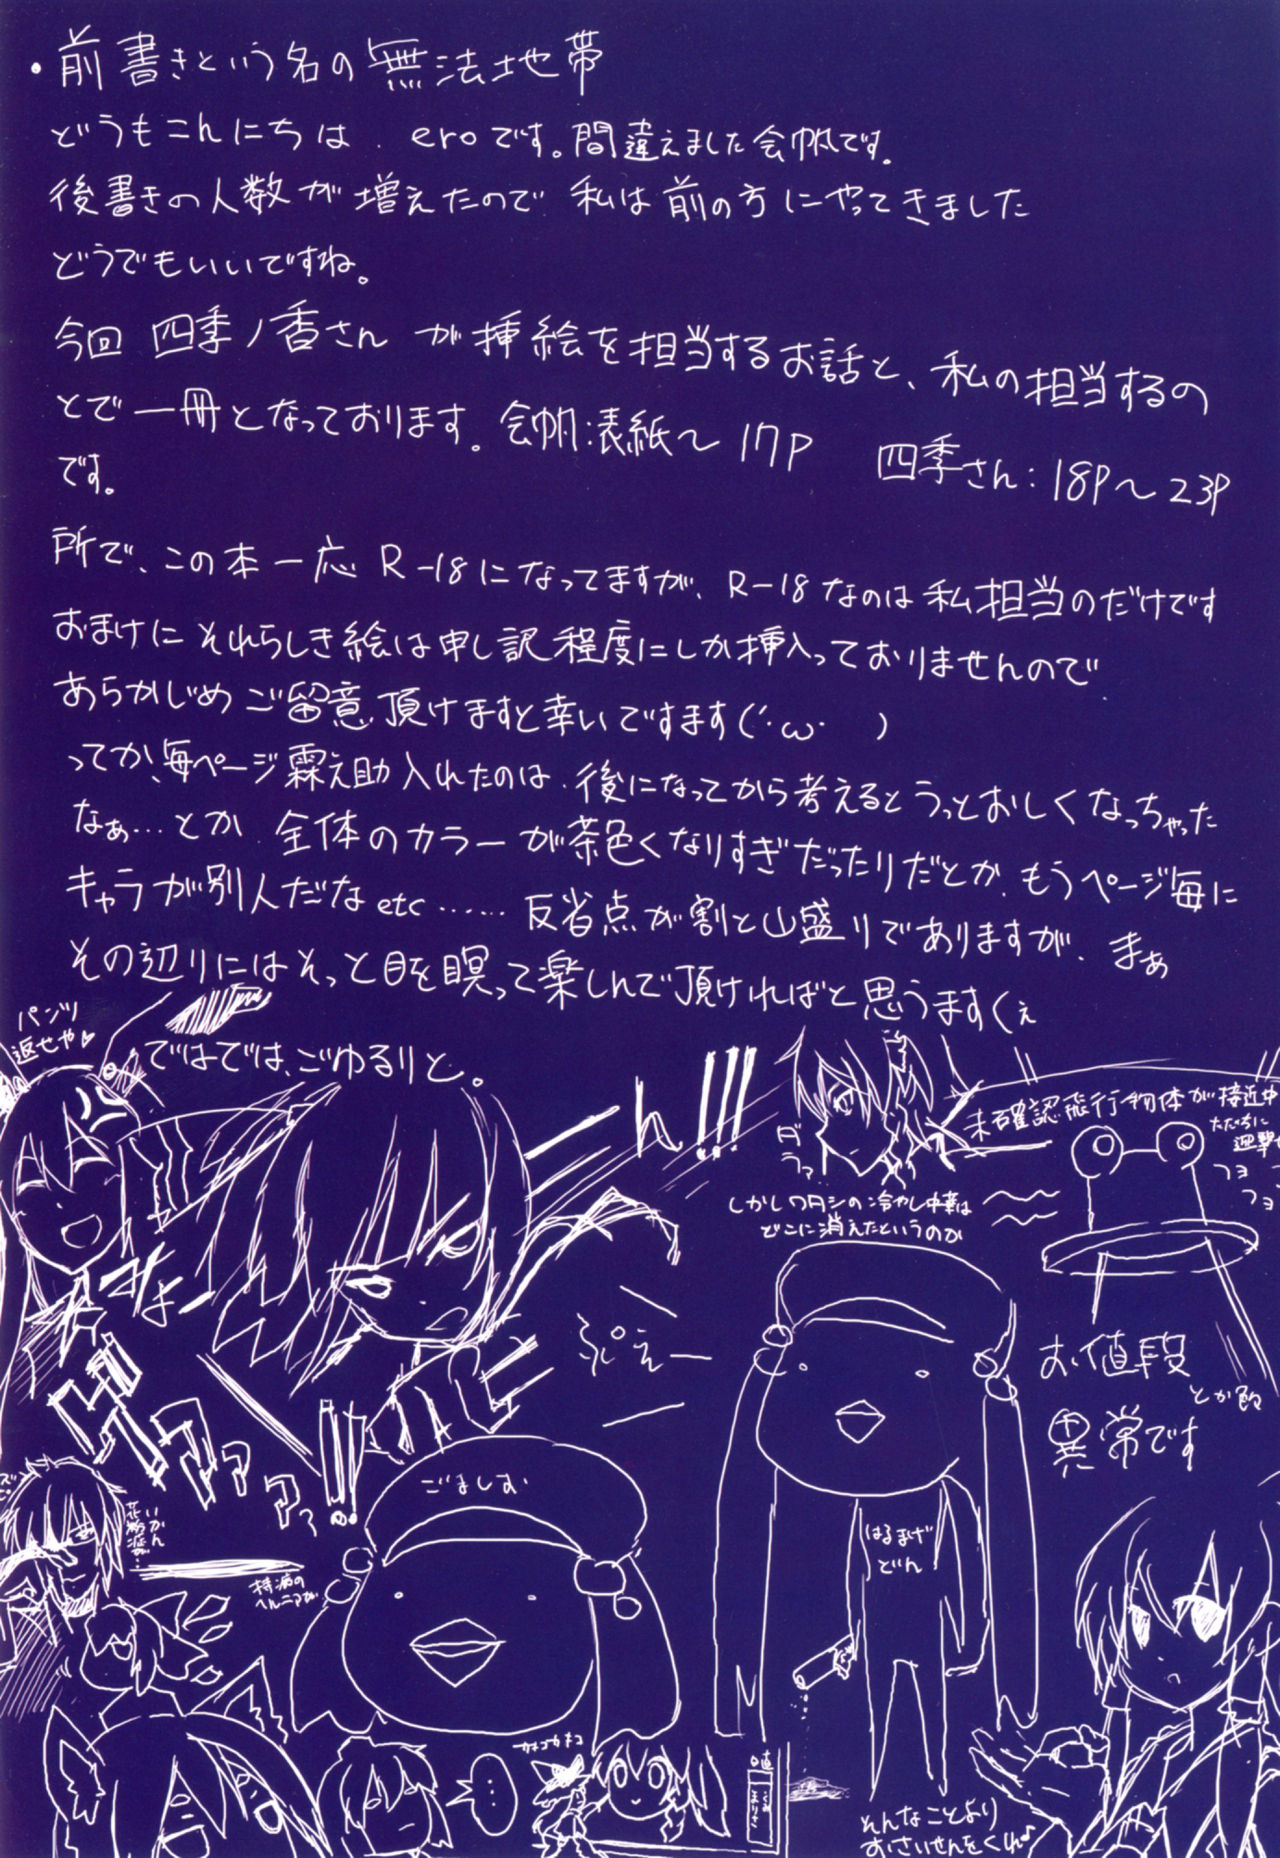 ・前書きという名の無法地帯
どうもこんにちは、eroです。間違えました会帆です。
後書きの人数が増えたので、私は前の方にやってきました
どうでもいいですね。
今回 四季ノ香さん が挿絵を担当するお話と、私の担当するの
とで一冊となっております。会帆:表紙～17P 四季さん:18P～23P
です。
所で、この本一応R-18になってますが、R-18なのは私担当のだけです
おまけにそれらしき絵は申し訳程度にしか挿入っておりませんので
あらかじめご留意頂けますと幸いですます(´・ω・ )
ってか、毎ページ霖之助入れたのは、後になってから考えるとうっとおしくなっちゃった
なぁ…とか 全体のカラーが茶色くなりすぎだったりだとか、もうページ毎に
キャラが別人だな etc…… 反省点が割と山盛りでありますが、まぁ
その辺りにはそっと目を瞑って楽しんで頂ければと思うますくぇ
ではでは、ごゆるりと。
パンツ
返せや♥
ん!!!
ダラっ
未確認飛行物体が接近中
ただちに
迎撃
フヨ
フヨ
しかしワタシの冷やし中華は
どこに消えたというのか
ぷえー
お値段
とか的
異常です
ごましお
はるまげ
どん
いかん
花粉症が…
持病の
ヘルニアが
…
そんなことより
おさいせんをくれ♪